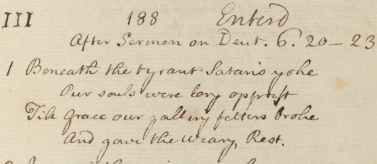 III 188 Enterd
After Sermon on Deut. 6. 20–23
1 Beneath the tyrant Satan's yoke
Our souls were long opprest
Till grace our galling fetters broke
And gave the Weary, Rest.